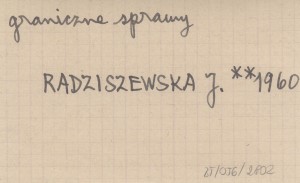 graniczne sprawy
RADZISZEWSKA J. **1960
25/056/2802